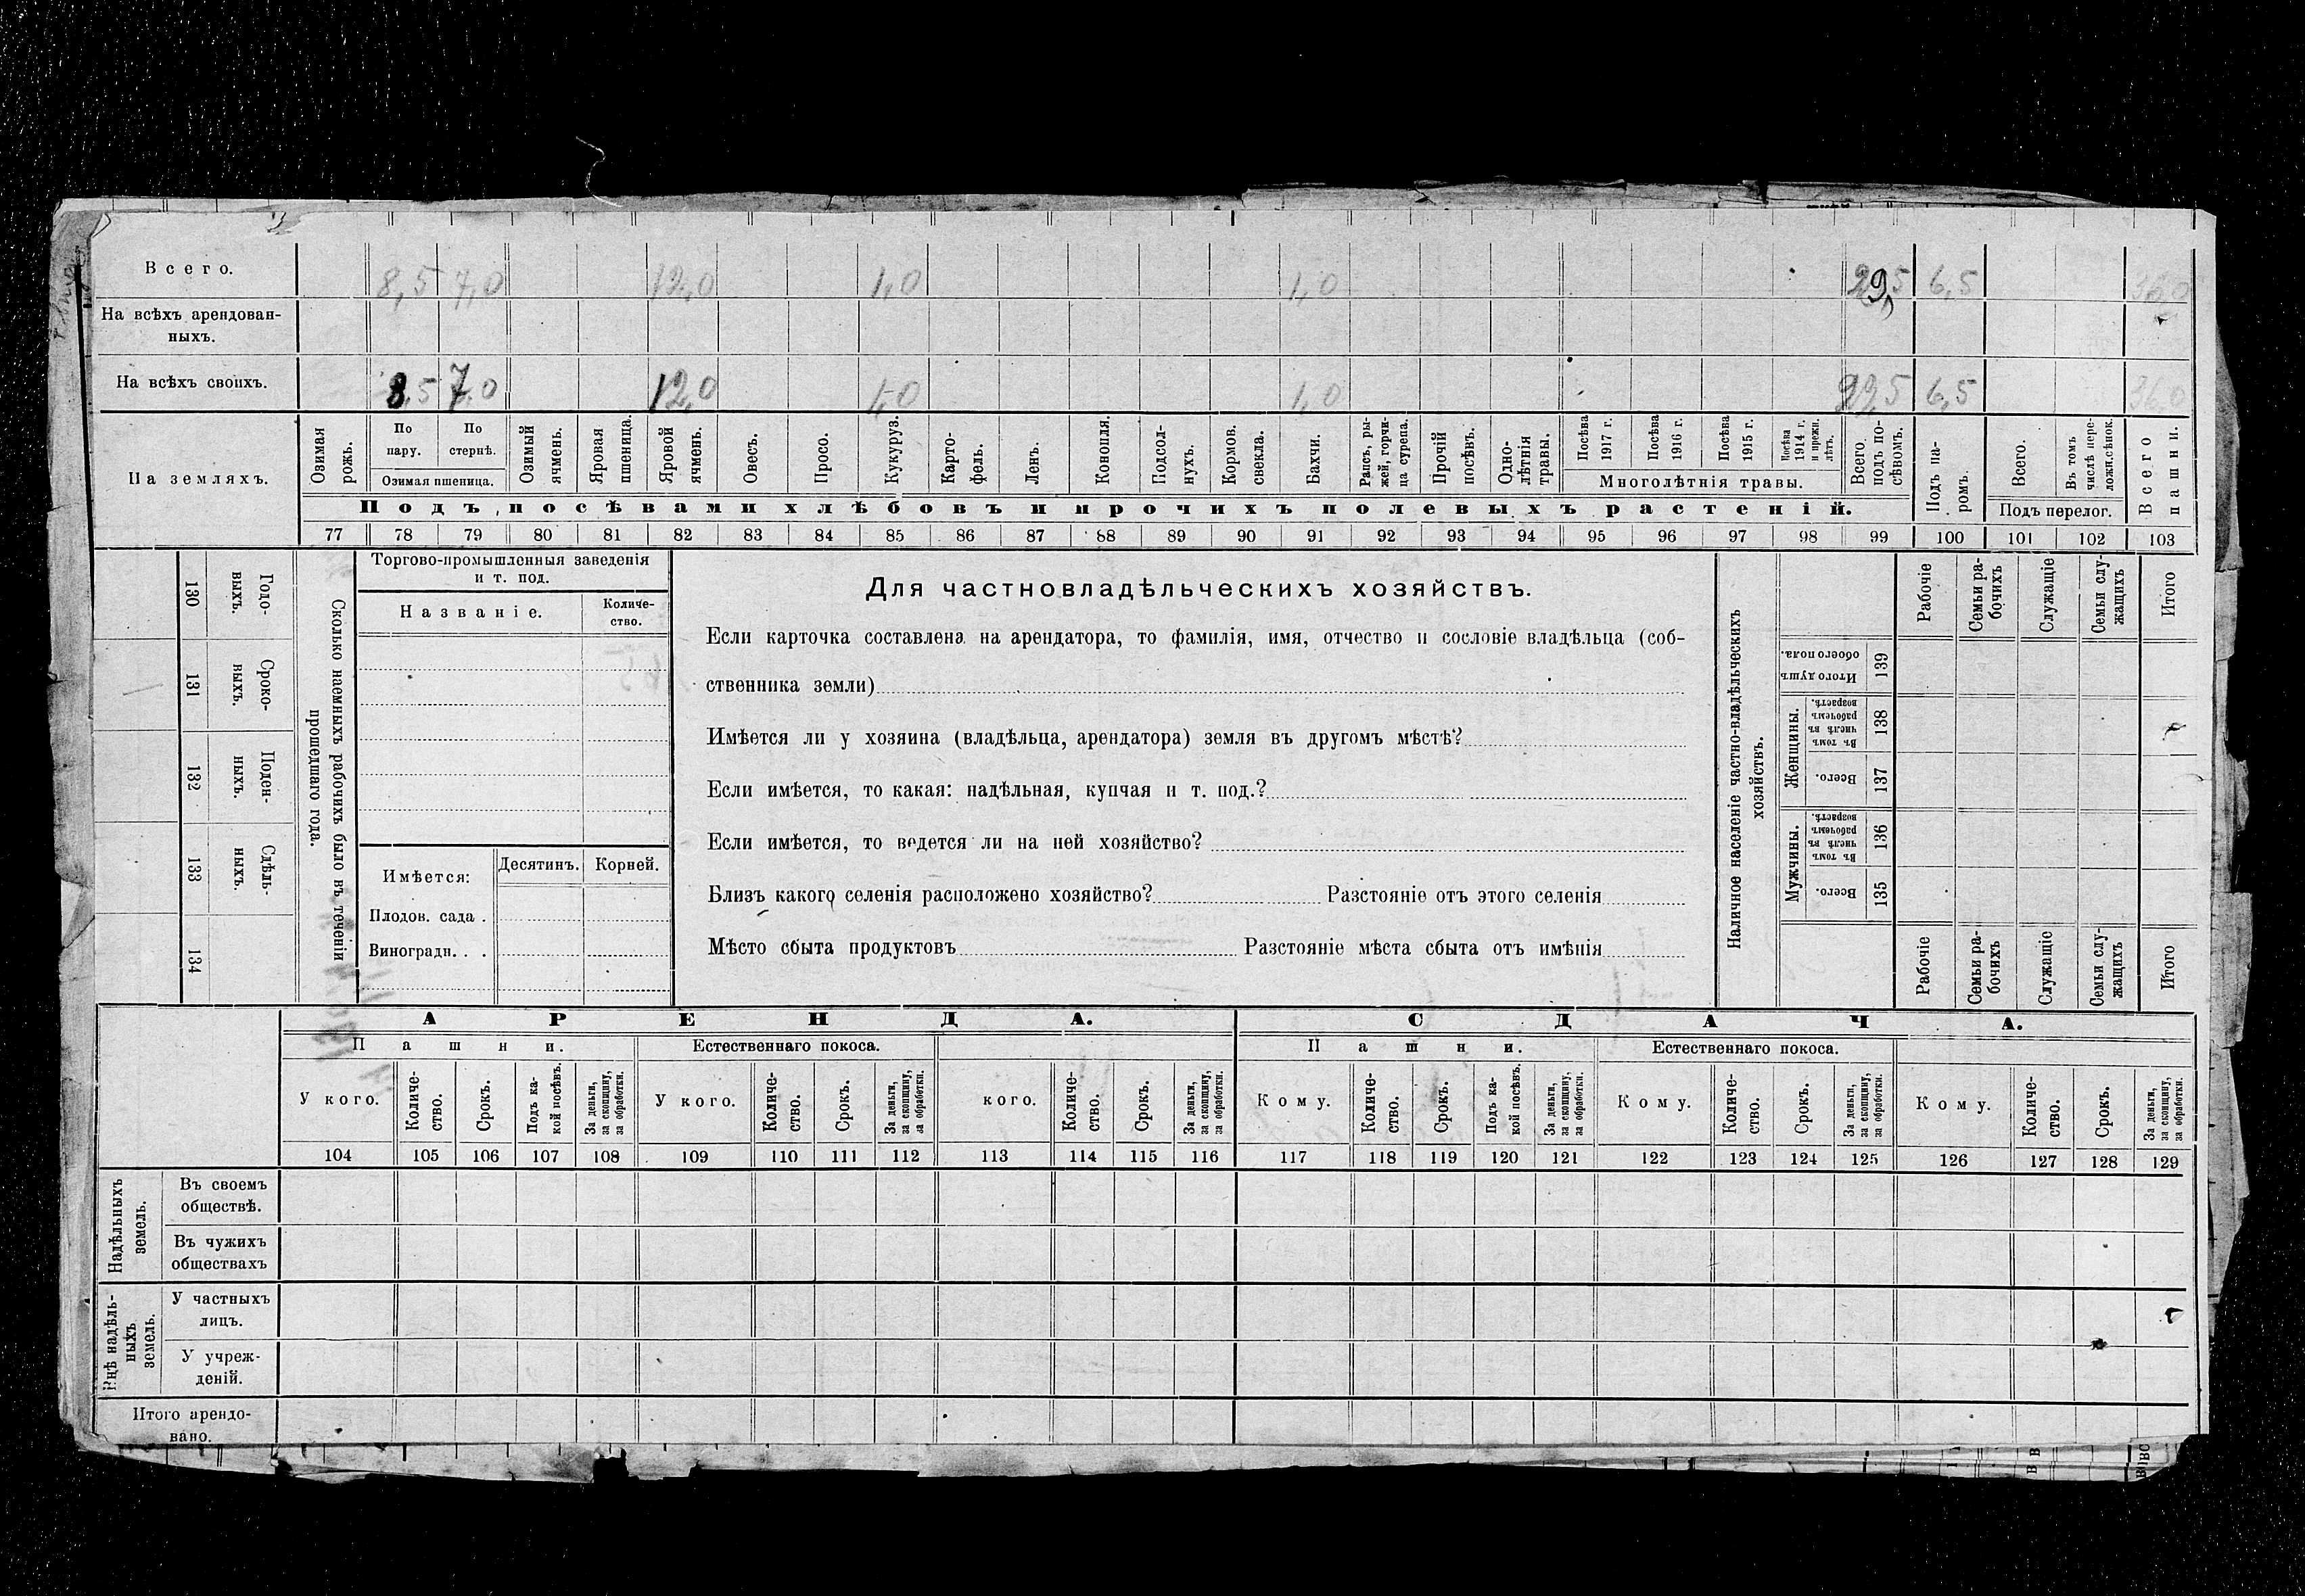 Всего. 8,5 7,0 12,0 1,0 1,0 29,5 6,5 36,0
На всѣхъ арендован-
ныхъ.
На всѣхъ своихъ. 8,5 7,0 12,0 1,0 1,0 29,5 6,5 36,0
На земляхъ.
Озимая рожь.
По пару.
По стернѣ.
Озимая пшеница.
Озимый ячмень.
Яровая пшеница.
Яровой ячмень.
Овесъ.
Просо.
Кукуруз.
Карто-
фель.
Ленъ.
Конопля.
Подсол-
нухъ.
Кормов. свекла.
Бахчи.
Рапсъ, ры-
жей, горчи-
ца сурепа.
Прочій посѣвъ.
Одно-
лѣтнія травы.
Посѣва 1917 г.
Посѣва 1916 г.
Посѣва 1915 г.
Посѣва 1914 г. и прежн. лѣтъ.
Многолѣтнія травы.
Всего подъ по-
сѣвомъ.
Подъ па-
ромъ.
Всего.
Въ томъ числѣ пере-
ложн. сѣнок.
Подъ перелог.
Всего пашни.
Подъ посѣвами хлѣбовъ и прочихъ полевыхъ растеній.
77 78 79 80 81 82 83 84 85 86 87 88 89 90 91 92 93 94 95 96 97 98 99 100 101 102 103
130 Годо-
выхъ.
131 Сроко-
выхъ.
132 Поден-
ныхъ.
133 Сдѣль-
ныхъ.
134
Сколько наемныхъ рабочихъ было въ теченіи
прошедшаго года.
Торгово-промышленныя заведенія
и т. под.
Названіе.
Количе-
ство.
Имѣется:
Десятинъ. Корней.
Плодов. сада .
Виноградн. . .
Для частновладѣльческихъ хозяйствъ.
Если карточка составлена на арендатора, то фамилія, имя, отчество и сословіе владѣльца (соб-
ственника земли)
Имѣется ли у хозяина (владѣльца, арендатора) земля въ другомъ мѣстѣ?
Если имѣется, то какая: надѣльная, купчая и т. под.?
Если имѣется, то ведется ли на ней хозяйство?
Близъ какого селенія расположено хозяйство? Разстояніе отъ этого селенія
Мѣсто сбыта продуктовъ Разстояніе мѣста сбыта отъ имѣнія
Наличное населеніе частно-владѣльческихъ
хозяйствъ.
Рабочіе
Семьи ра-
бочихъ
Служащіе
Семьи слу-
жащихъ
Итого
Итого душъ обоего пола. 139
Женщины.
Въ томъ числѣ въ рабочемъ возрастѣ. 138
Всего. 137
Мужчины.
Въ томъ числѣ въ рабочемъ возрастѣ. 136
Всего. 135
Рабочіе
Семьи ра-
бочихъ
Служащіе
Семьи слу-
жащихъ
Итого
АРЕНДА. СДАЧА.
Пашни. Естественнаго покоса. Пашни. Естественнаго покоса.
У кого.
Количе-
ство.
Срокъ.
Подъ ка-
кой посѣвъ.
За деньги,
за скопщину,
за обработки.
У кого.
Количе-
ство.
Срокъ.
За деньги,
за скопщину,
за обработки.
кого.
Количе-
ство.
Срокъ.
За деньги,
за скопщину,
за обработки.
Кому.
Количе-
ство.
Срокъ.
Подъ ка-
кой посѣвъ.
За деньги,
за скопщину,
за обработки.
Кому.
Количе-
ство.
Срокъ.
За деньги,
за скопщину,
за обработки.
Кому.
Количе-
ство.
Срокъ.
За деньги,
за скопщину,
за обработки.
104 105 106 107 108 109 110 111 112 113 114 115 116 117 118 119 120 121 122 123 124 125 126 127 128 129
Надѣльныхъ
земель.
Въ своемъ
обществѣ.
Въ чужихъ
обществахъ
Внѣ надѣль-
ныхъ
земель.
У частныхъ
лицъ.
У учреж-
деній.
Итого арендо-
вано.